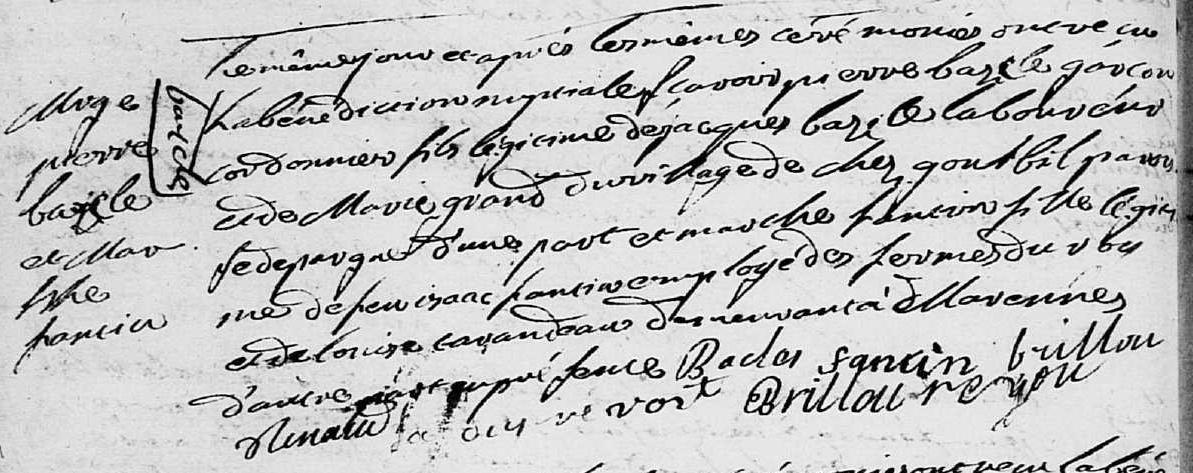 Mage
pierre
bazile
et Mar
the
fantin
bazile
Le même jour et après les mêmes cérémonies ont reçu
La bénédiction nuptiale scavoir pierre bazile garçon
cordonnier fils légitime de jacques bazile laboureur
et de Marie grand du village de chez goutbil parois
se de d'une part et marthe fantin fille légiti
me de feu isaac fantin employé des fermes du roy
et de louise demeurant à Marennes
d'autre part en présence fantin brillou
Renaud Brillou